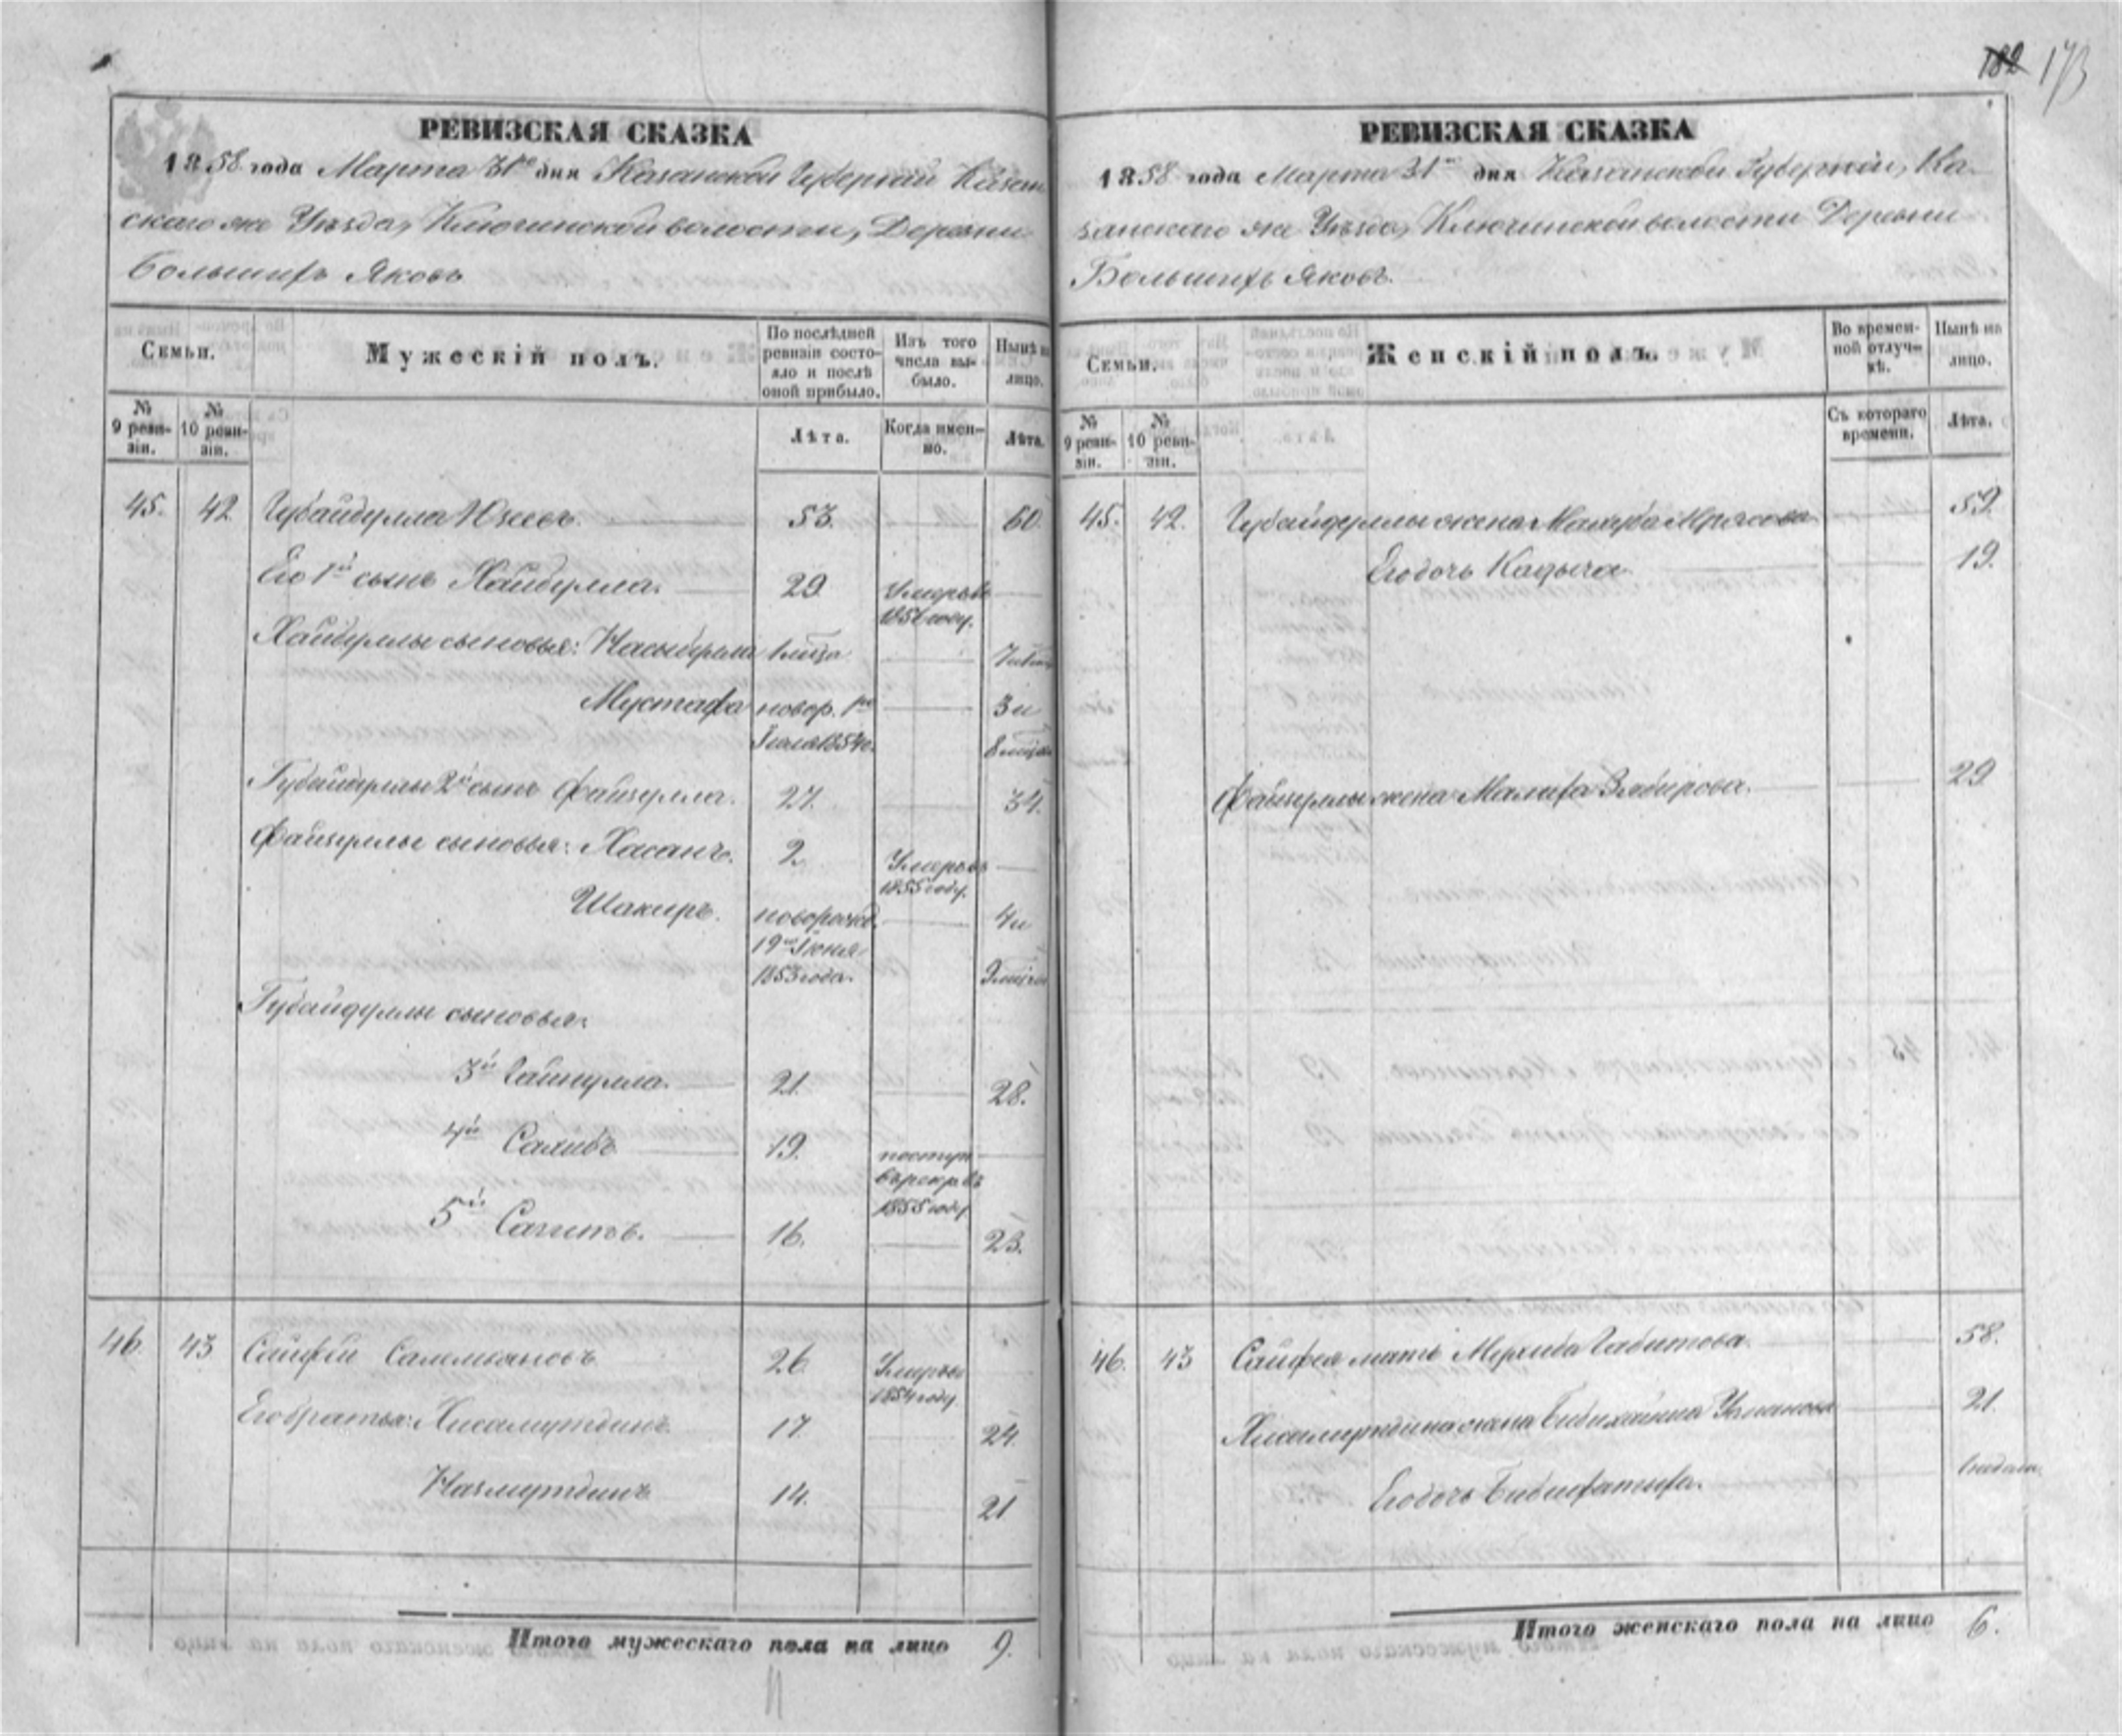 182 173
РЕВИЗСКАЯ СКАЗКА
1858 года Марта 31го дня Казанской Губернии Казан
скаго же Уѣзда, Ключинской волости, Деревни
Большихъ Яковъ
Семьи.
Мужескій полъ.
По послѣдней ревизіи состояло и послѣ оной прибыло.
Изъ того числа выбыло.
Нынѣ на лицо.
№ 9 ревизіи.
№ 10 ревизіи.
Лѣта.
Когда именно.
Лѣта.
45. 42 Губайдулла 53. 60.
Его 1й сынъ Хайбулла. 29 Умеръ въ
году.
Хайбуллы сыновья:
Мустафа новор. 1го 3 и
1854
Губайдуллы 2й сынъ Файзулла. 27. 34.
Файзуллы сыновья: Хасанъ. 2 Умеръ въ
1855 году.
Шакиръ. 4 и
19го Іюня
1853 года.
Губайдуллы сыновья:
3й Гайнулла. 21. 28.
4й Сахибъ 19. поступ.
въ рекр. въ
1855 году
5й Сагитъ. 16. 23.
46. 43 Сайфій 26. Умеръ въ
1854 году
Его братья: Хисамутдинъ 17 24.
Назмутдинъ 14. 21
Итого мужескаго пола на лицо 9.
11
РЕВИЗСКАЯ СКАЗКА
1858 года Марта 31го дня Казанской Губерніи, Ка-
занскаго же Уѣзда, Ключинской волости Деревни
Большихъ Яковъ.
Семьи.
Женскій полъ.
Во временной отлучкѣ.
Нынѣ на лицо.
№ 9 ревизіи.
№ 10 ревизіи.
Съ котораго времени.
Лѣта.
45. 42. Губайдуллы жена 59.
Его дочь Кадыча 19.
Файзуллы жена 29
46. 43 Сайфея мать Габитова 58.
Хисамутдина жена 21.
Его дочь
Итого женскаго пола на лицо 6.